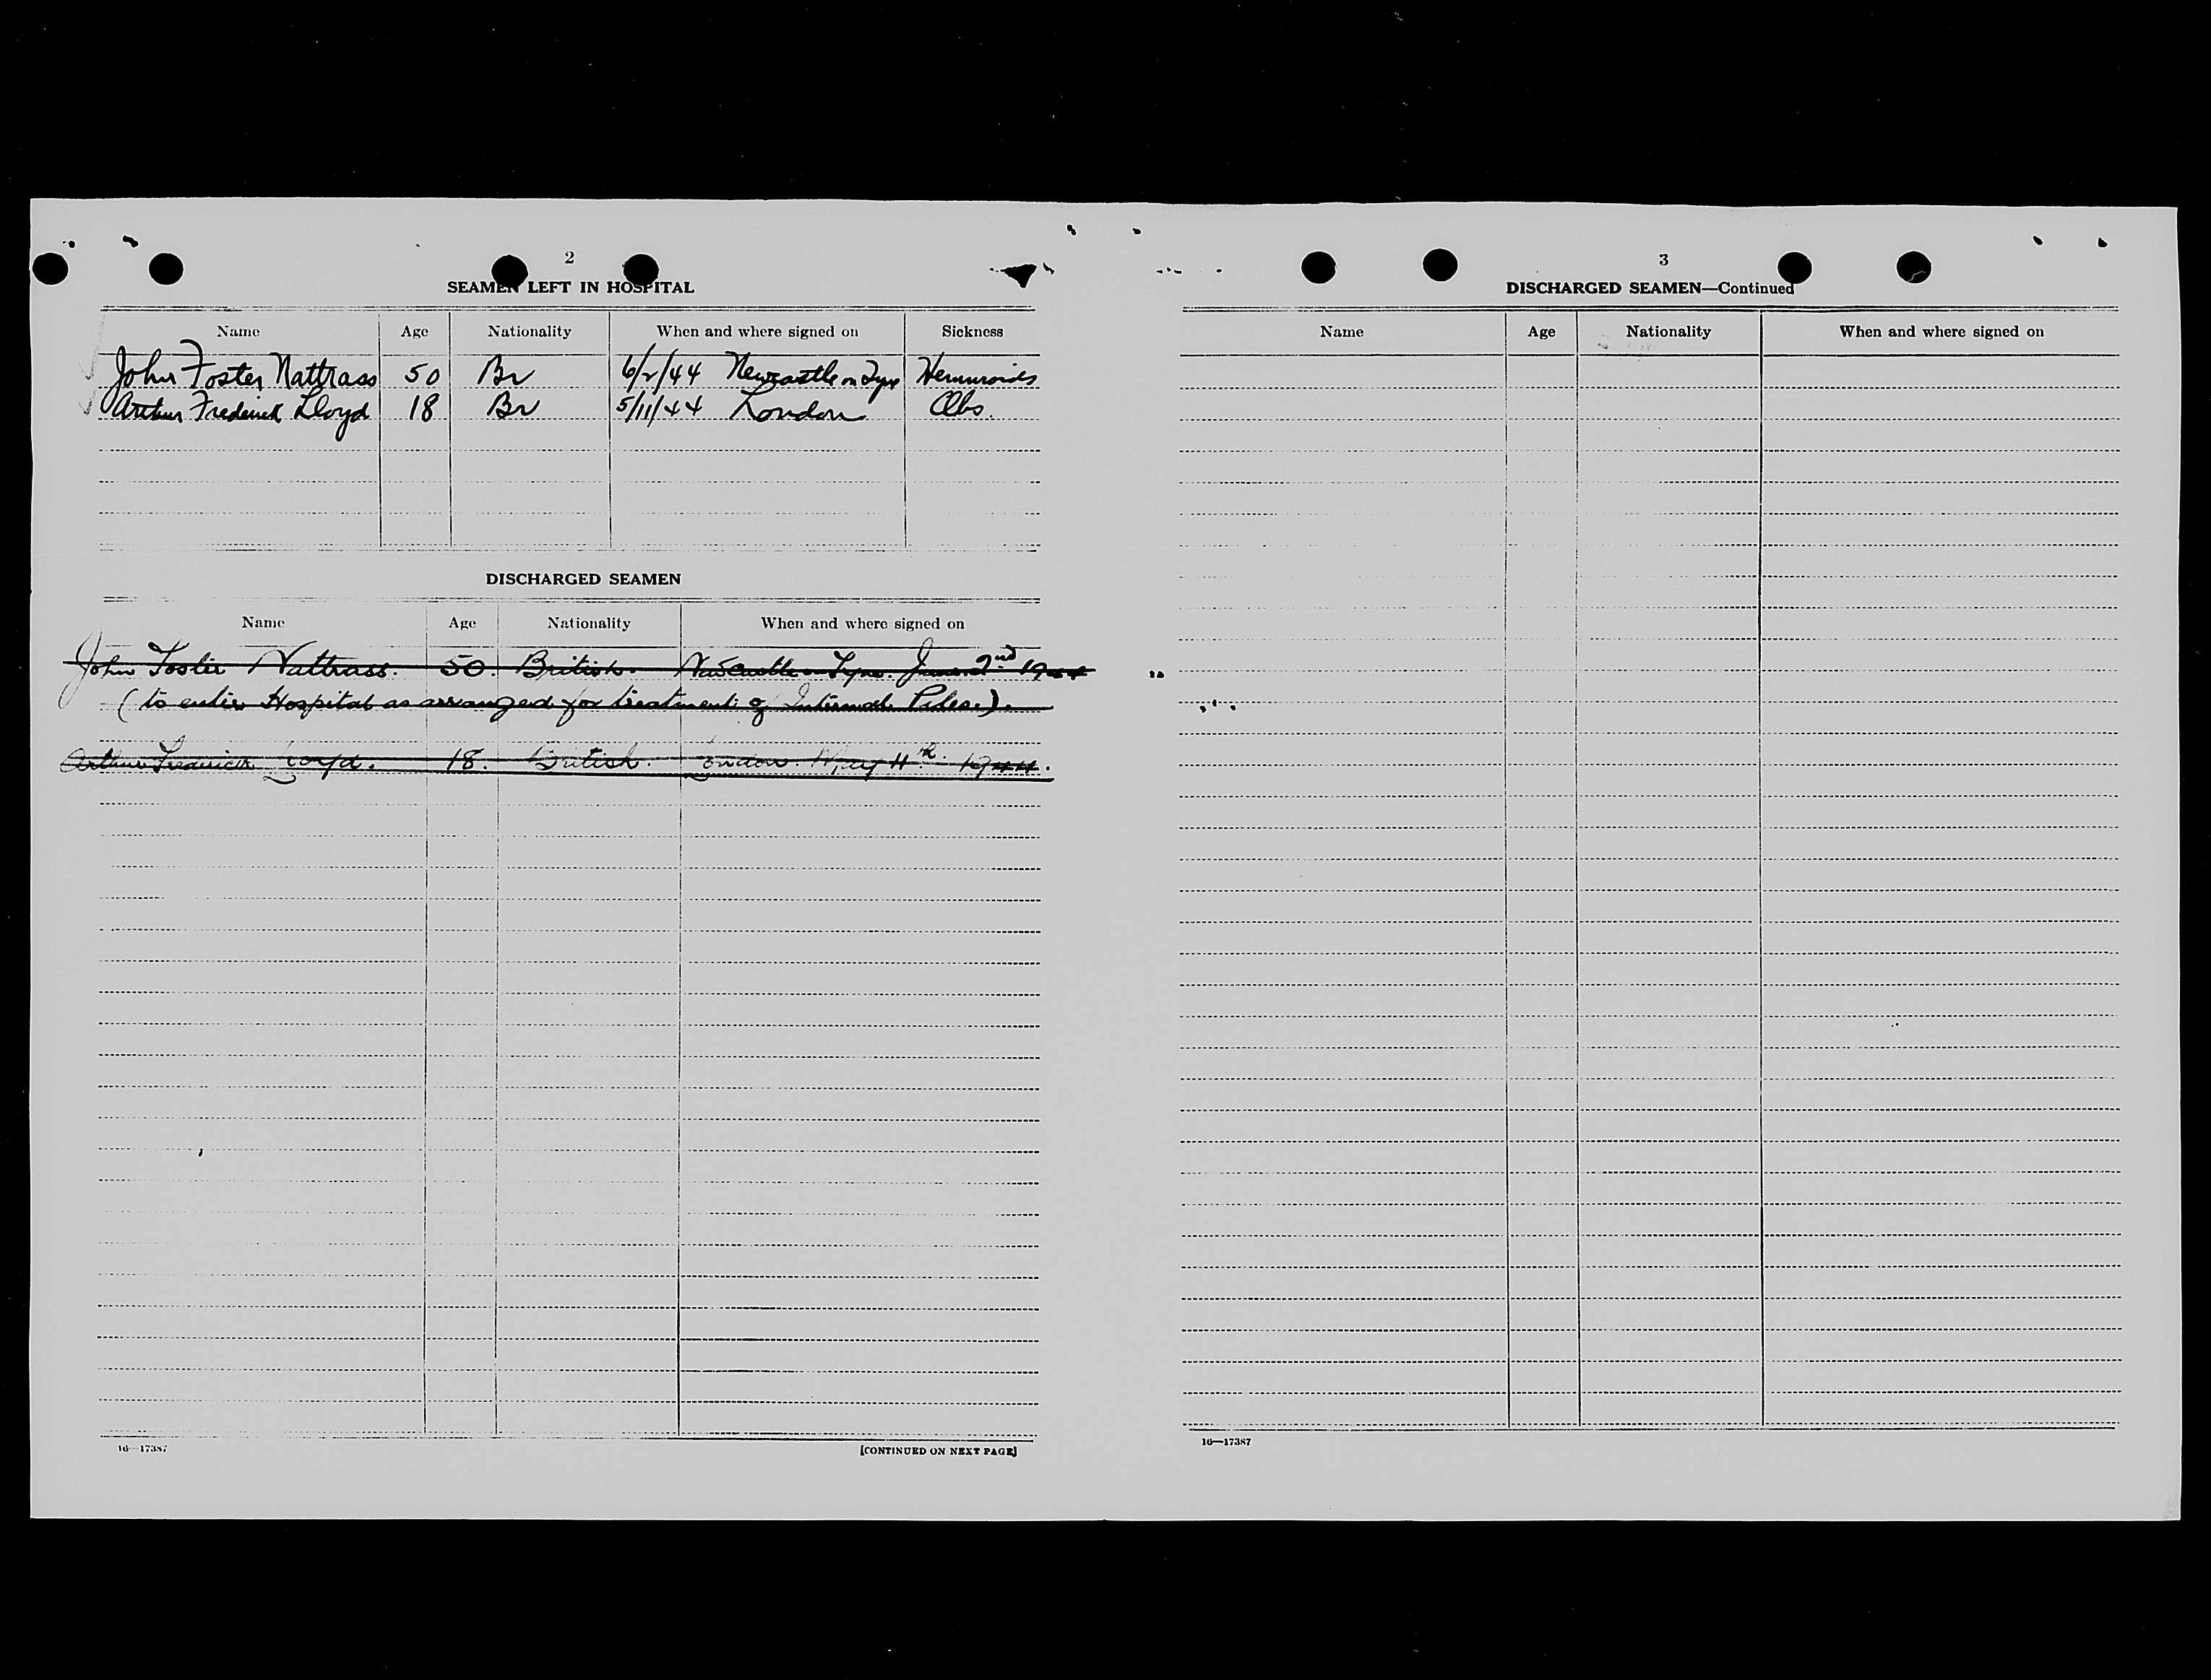 2
SEAMEN LEFT IN HOSPITAL
Name Age Nationality When and where signed on Sickness
John Foster Nattrass 50 Br 6/2/44 Newcastle on Tyne Hemmroids
Arthur Frederick Lloyd 18 Br 5/11/44 London Obs.
DISCHARGED SEAMEN
Name Age Nationality When and where signed on
John Foster Nattrass. 50. British. Newcastle on Tyne. June 2nd 1944
(to enter Hospital as arranged for treatment of Internal Piles.).
Arthur Frederick Lloyd. 18. British. London May 11th. 1944.
16—17387
[CONTINUED ON NEXT PAGE]
3
DISCHARGED SEAMEN—Continued
Name Age Nationality When and where signed on
16—17387